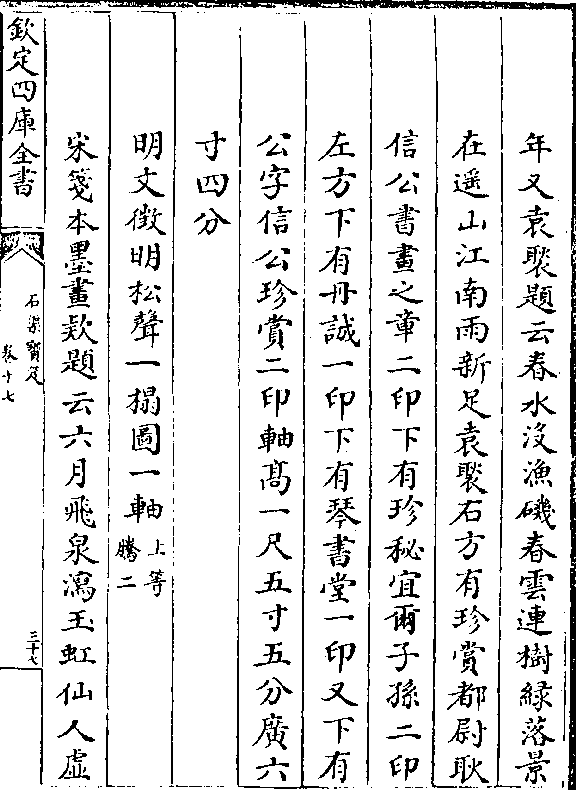 年又袁褧題云春水沒漁磯春雲連樹緑落景
在遥山江南雨新足袁褧右方有珍賞都尉耿
信公書畫之章二印下有珍秘宜爾子孫二印
左方下有丹誠一印下有琴書堂一印又下有
公字信公珍賞二印軸髙一尺五寸五分廣六
寸四分
明文徴明松聲一榻圖一軸上等騰二
宋箋本墨畫欵題云六月飛泉瀉玉虹仙人虛
欽定四庫全書
石渠寶笈
卷十七
三十七